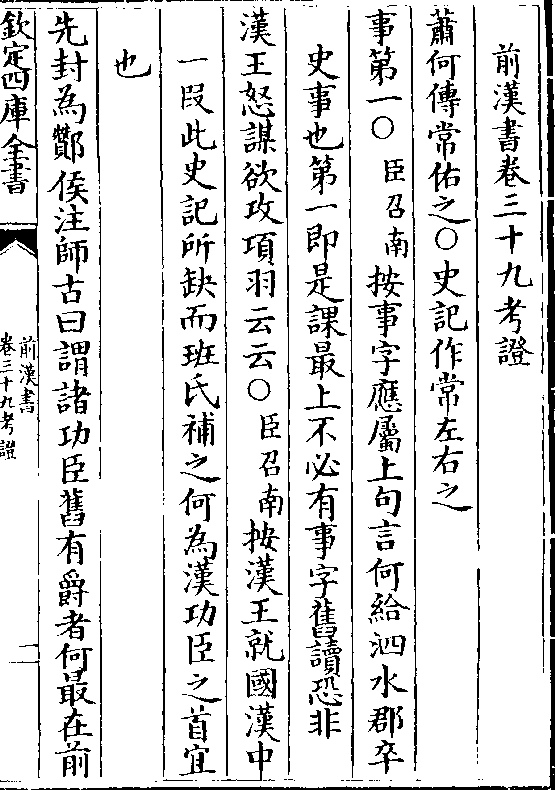 前漢書卷三十九考證
蕭何傳常佑之○史記作常左右之
事第一○臣召南按事字應屬上句言何給泗水郡卒
史事也第一即是課最上不必有事字舊讀恐非
漢王怒謀欲攻項羽云云○臣召南按漢王就國漢中
一段此史記所缺而班氏補之何為漢功臣之首宜
也
先封為酇侯注師古曰謂諸功臣舊有爵者何最在前
欽定四庫全書
前漢書
卷三十九考證
二